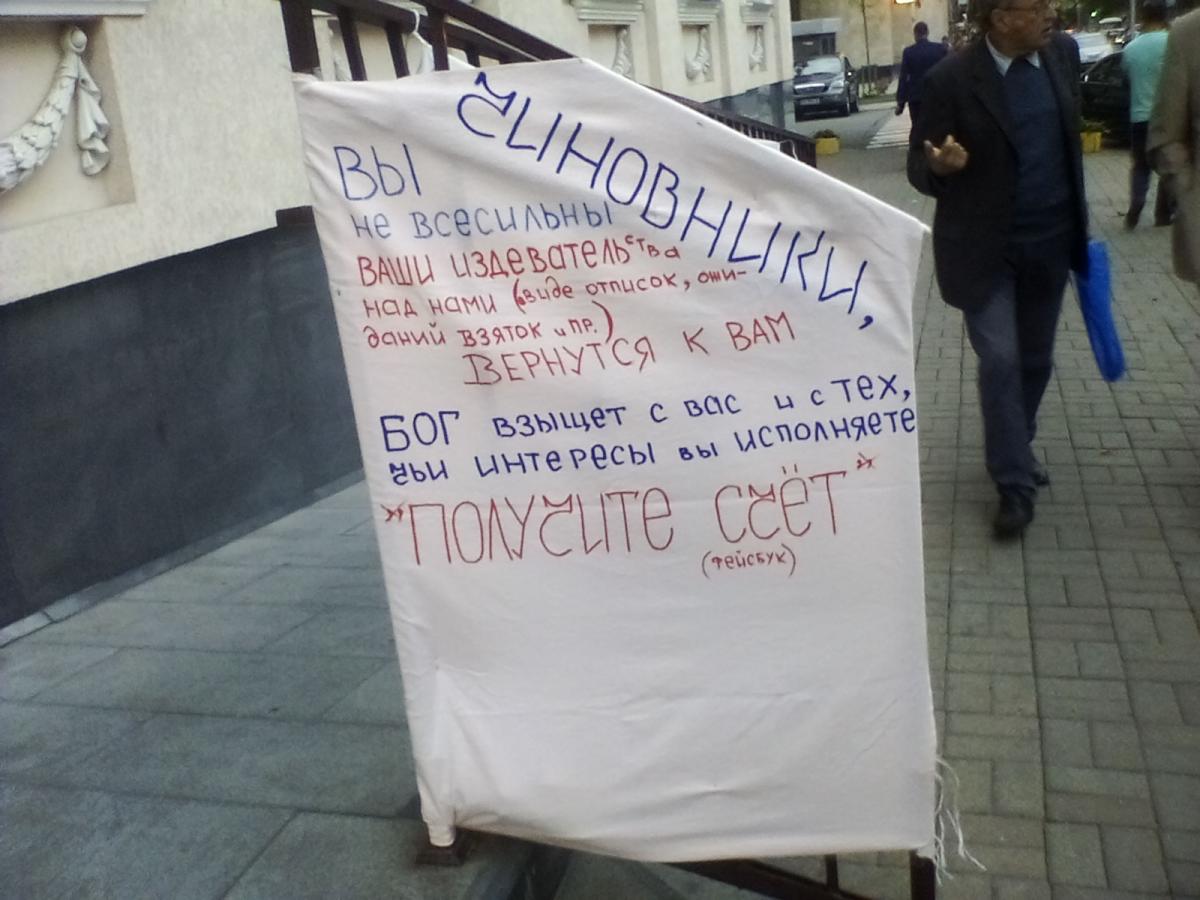 ЧИНОВНИКИ,
ВЫ
не всесильны
ВАШИ издевательства
над нами (ввиде отписок, ожи-
даний взяток и пр.)
ВЕРНУТСЯ К ВАМ
БОГ взыщет с вас и с тех,
чьи интересы вы исполняете
"ПОЛУЧИТЕ СЧЁТ"
(фейсбук)